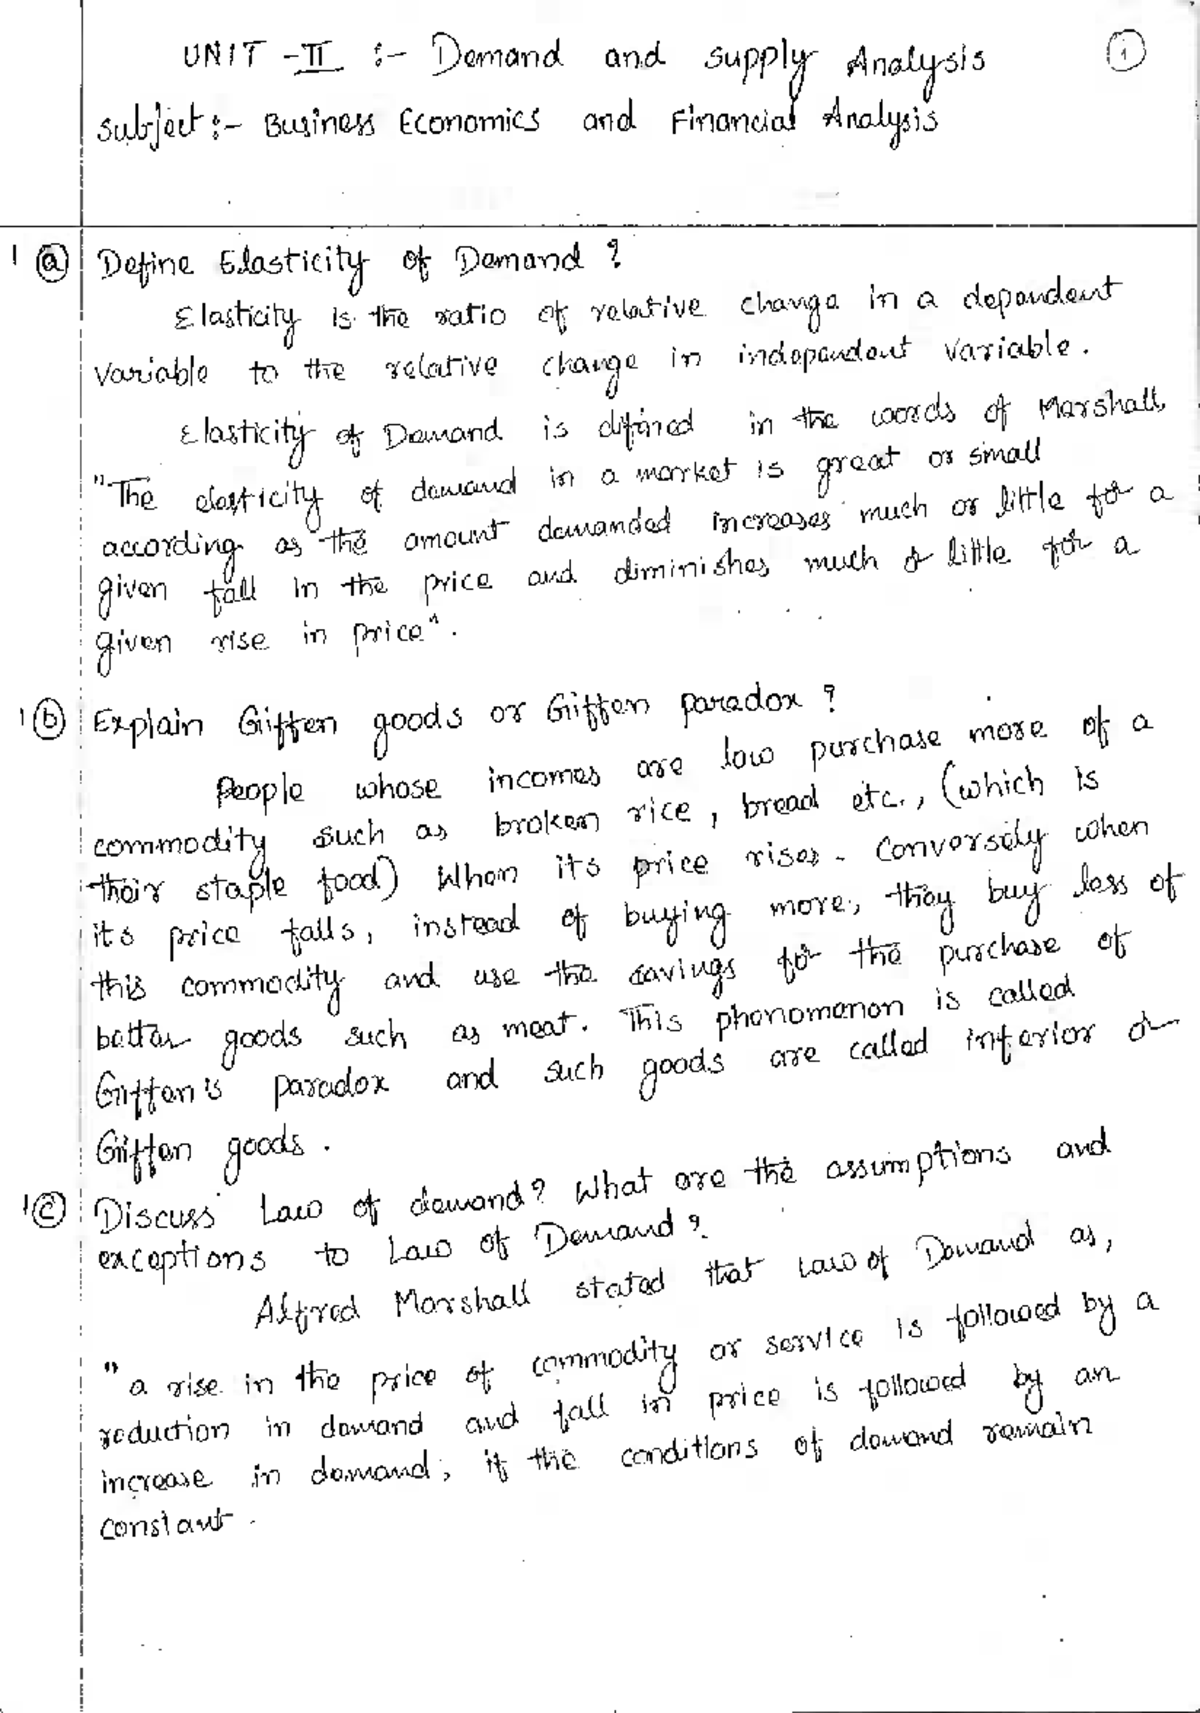 UNIT - II :- Demand and Supply Analysis
1
Subject :- Business Economics and Financial Analysis
1 (a) Define Elasticity of Demand ?
Elasticity is the ratio of relative change in a dependent
variable to the relative change in independent variable.
Elasticity of Demand is defined in the words of Marshall,
"The elasticity of demand in a market is great or small
according as the amount demanded increases much or little for a
given fall in the price and diminishes much or little for a
given rise in price".
1 (b) Explain Giffen goods or Giffen paradox ?
People whose incomes are low purchase more of a
commodity such as broken rice, bread etc., (which is
their staple food) When its price rises. Conversely when
its price falls, instead of buying more, they buy less of
this commodity and use the savings for the purchase of
better goods such as meat. This phenomenon is called
Giffen's paradox and such goods are called inferior or
Giffen goods.
1 (c) Discuss Law of demand? What are the assumptions and
exceptions to Law of Demand?
Alfred Marshall stated that Law of Demand as,
"a rise in the price of commodity or service is followed by a
reduction in demand and fall in price is followed by an
increase in demand, if the conditions of demand remain
constant.